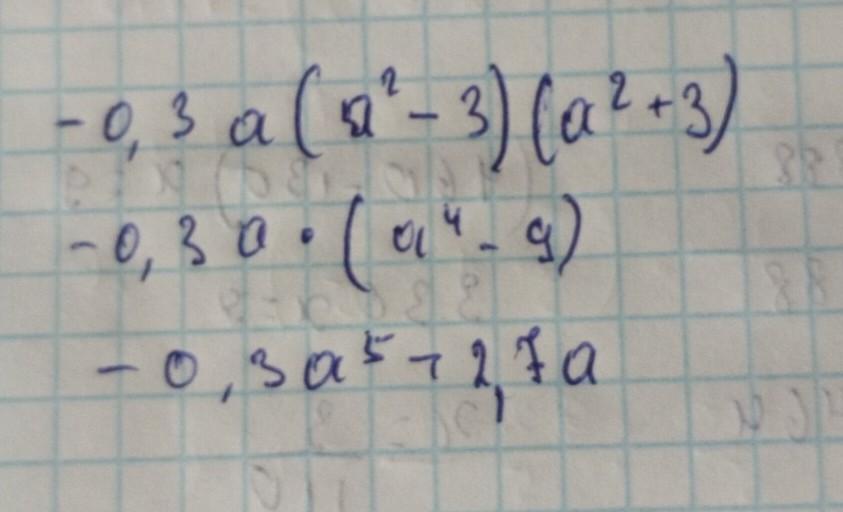 -0,3a(a²-3)(a²+3)
-0,3a·(a⁴-9)
-0,3a⁵+2,7a